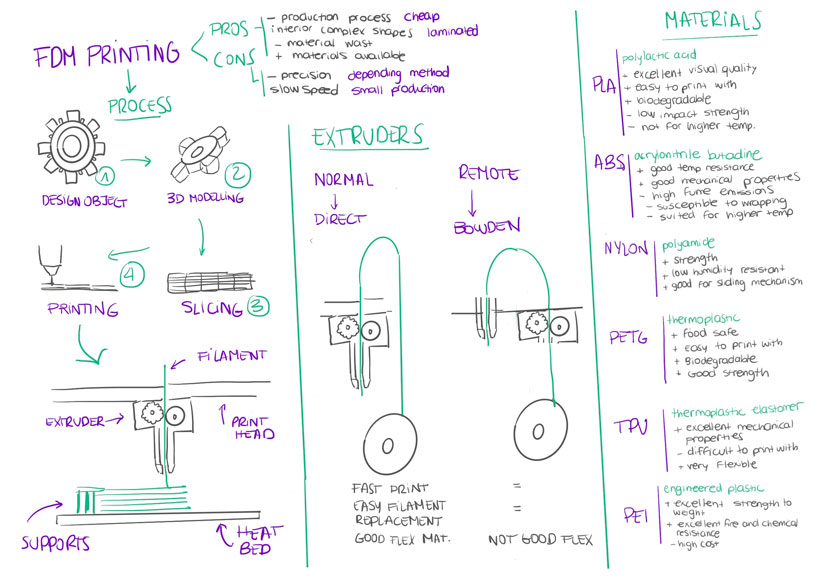 FDM PRINTING
PROS
- production process cheap
interior complex shapes laminated
- material wast
+ materials available
CONS
- precision depending method
slow speed small production
PROCESS
1
DESIGN OBJECT
2
3D MODELLING
4
PRINTING
SLICING 3
FILAMENT
EXTRUDER
PRINT
HEAD
SUPPORTS
HEAT
BED
EXTRUDERS
NORMAL
DIRECT
REMOTE
BOWDEN
FAST PRINT =
EASY FILAMENT =
REPLACEMENT
GOOD FLEX MAT. NOT GOOD FLEX
MATERIALS
PLA
polylactic acid
+ excellent visual quality
+ easy to print with
+ biodegradable
- low impact strength
- not for higher temp.
ABS
acrylonitrile butadine
+ good temp resistance
+ good mechanical properties
- high fume emissions
- susceptible to wrapping
- suited for higher temp
NYLON
polyamide
+ strength
+ low humidity resistant
+ good for sliding mechanism
PETG
thermoplastic
+ food safe
+ easy to print with
+ Biodegradable
+ Good strength
TPU
thermoplastic elastomer
+ excellent mechanical
properties
- difficult to print with
+ very flexible
PEI
engineered plastic
+ excellent strength to
weight
+ excellent fire and chemical
resistance
- high cost